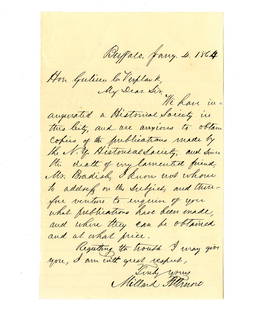 Buffalo, Jany. 4. 1864
Hon. Gulian C. Verplank,
My Dear Sir,
We have in-
augurated a Historical Society in
this City, and are anxious to obtain
copies of the publications made by
the N. Y. Historical Society, and since
the death of my lamented friend
Mr. Bradish, I know not whom
to address on the subject, and there-
fore venture to inquire of you
what publications have been made,
and where they can be obtained
and at what price.
Regretting the trouble I may give
you, I am with great respect,
Truly yours
Millard Fillmore